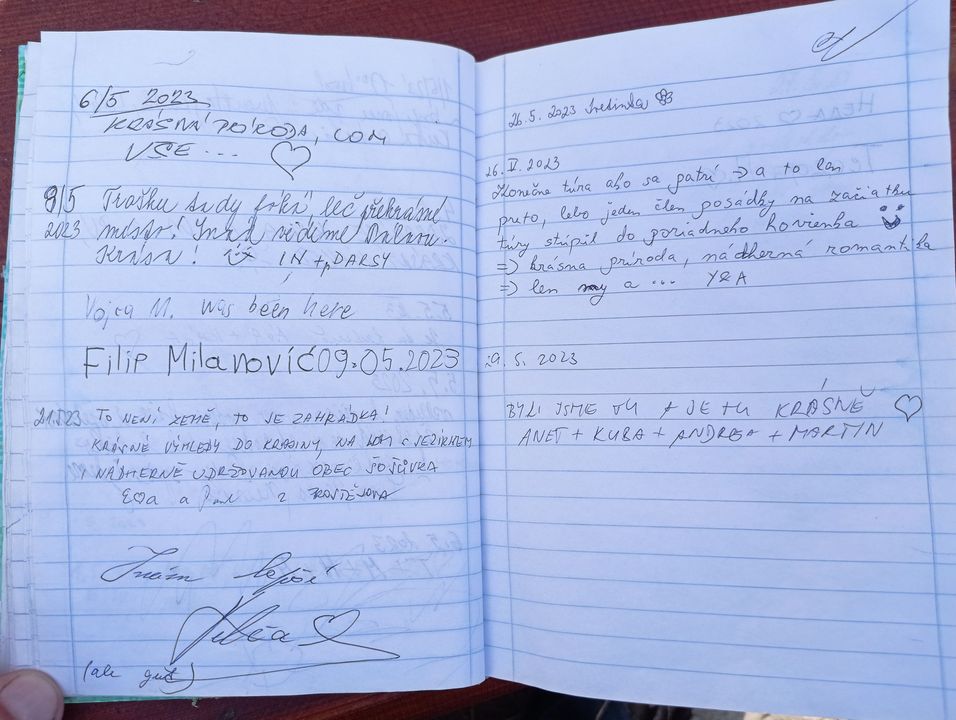 6/5 2023
KRÁSNÁ PŘÍRODA, LOM
VŠE ...
9/5 Trošku tady fouká, leč překrásné
2023 místo! Jinak vidíme
Krása! IN + DARSY
Vojta M. was been here
Filip Milanovíč 09.05.2023
21.5.23 TO NENÍ ZEMĚ, TO JE ZAHRÁDKA!
KRÁSNÉ VÝHLEDY DO KRAJINY, NA LOM S JEZÍRKEM
I NÁDHERNĚ UDRŽOVANOU OBEC ŠOŠŮVKA
Eva a z PROSTĚJOVA
Znám lepší
(ale good)
26.5. 2023 Svetinka
26. V. 2023
Konečne túra ako sa patrí => a to len
preto, lebo jeden člen posádky na začiatku
túry stúpil do poriadneho hovienka
=> krásna príroda, nádherná romantika
=> len my a ... Y&A
29. 5. 2023
BYLI JSME TU A JE TU KRÁSNĚ
ANET + KUBA + ANDREA + MARTIN